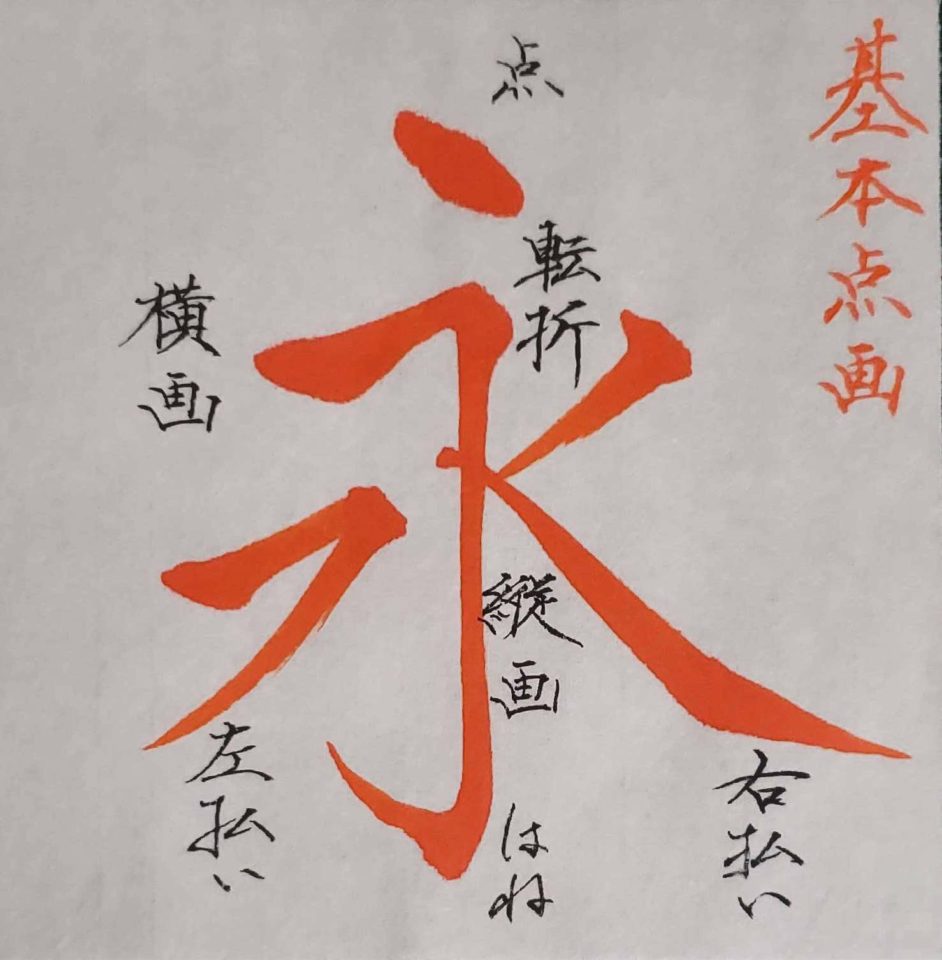 基本点画
永
点
転折
横画
縦画
左払い
はね
右払い